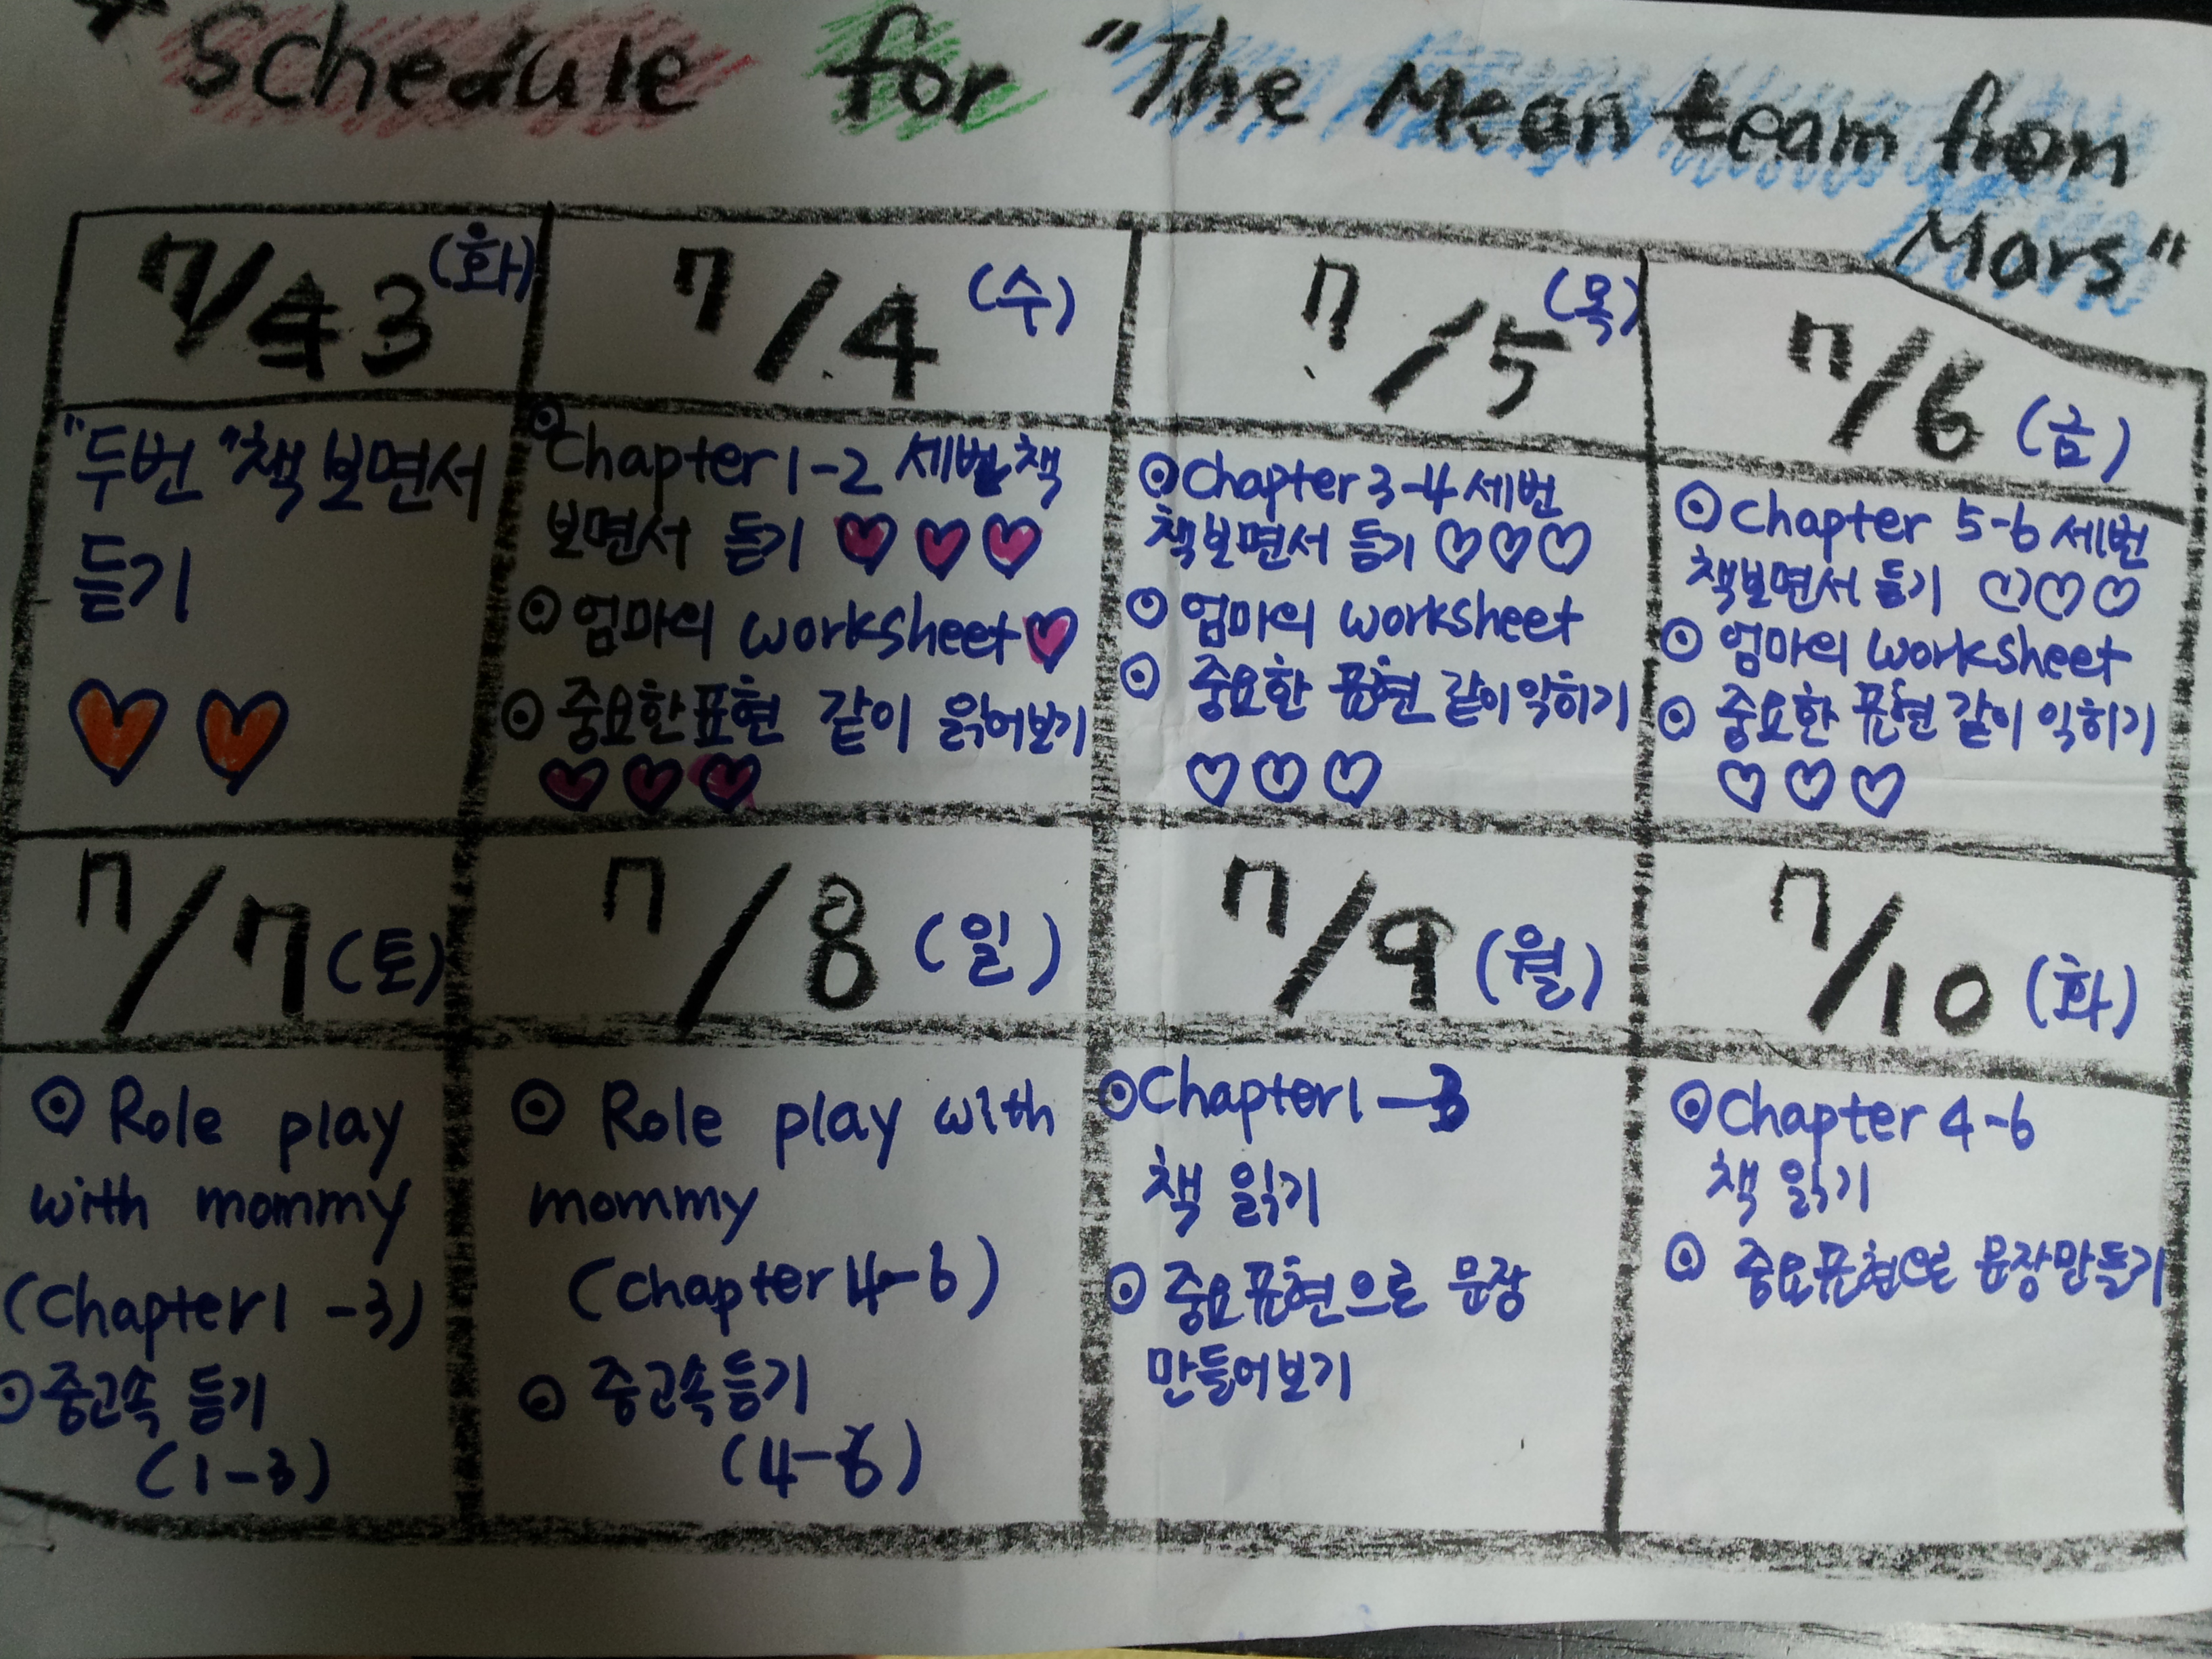 Schedule for "The Mean team from
Mars"
7/3 (화)
7/4 (수)
7/5 (목)
7/6 (금)
"두번" 책 보면서
듣기
Chapter 1-2 세번 책
보면서 듣기
엄마의 worksheet
중요한 표현 같이 읽어보기
Chapter 3-4 세번
책보면서 듣기
엄마의 worksheet
중요한 표현 같이 익히기
Chapter 5-6 세번
책보면서 듣기
엄마의 worksheet
중요한 표현 같이 익히기
7/7 (토)
7/8 (일)
7/9 (월)
7/10 (화)
Role play
with mommy
(Chapter 1-3)
중고속 듣기
(1-3)
Role play with
mommy
(Chapter 4-6)
중고속 듣기
(4-6)
Chapter 1-3
책 읽기
중요표현으로 문장
만들어보기
Chapter 4-6
책 읽기
중요표현으로 문장만들기